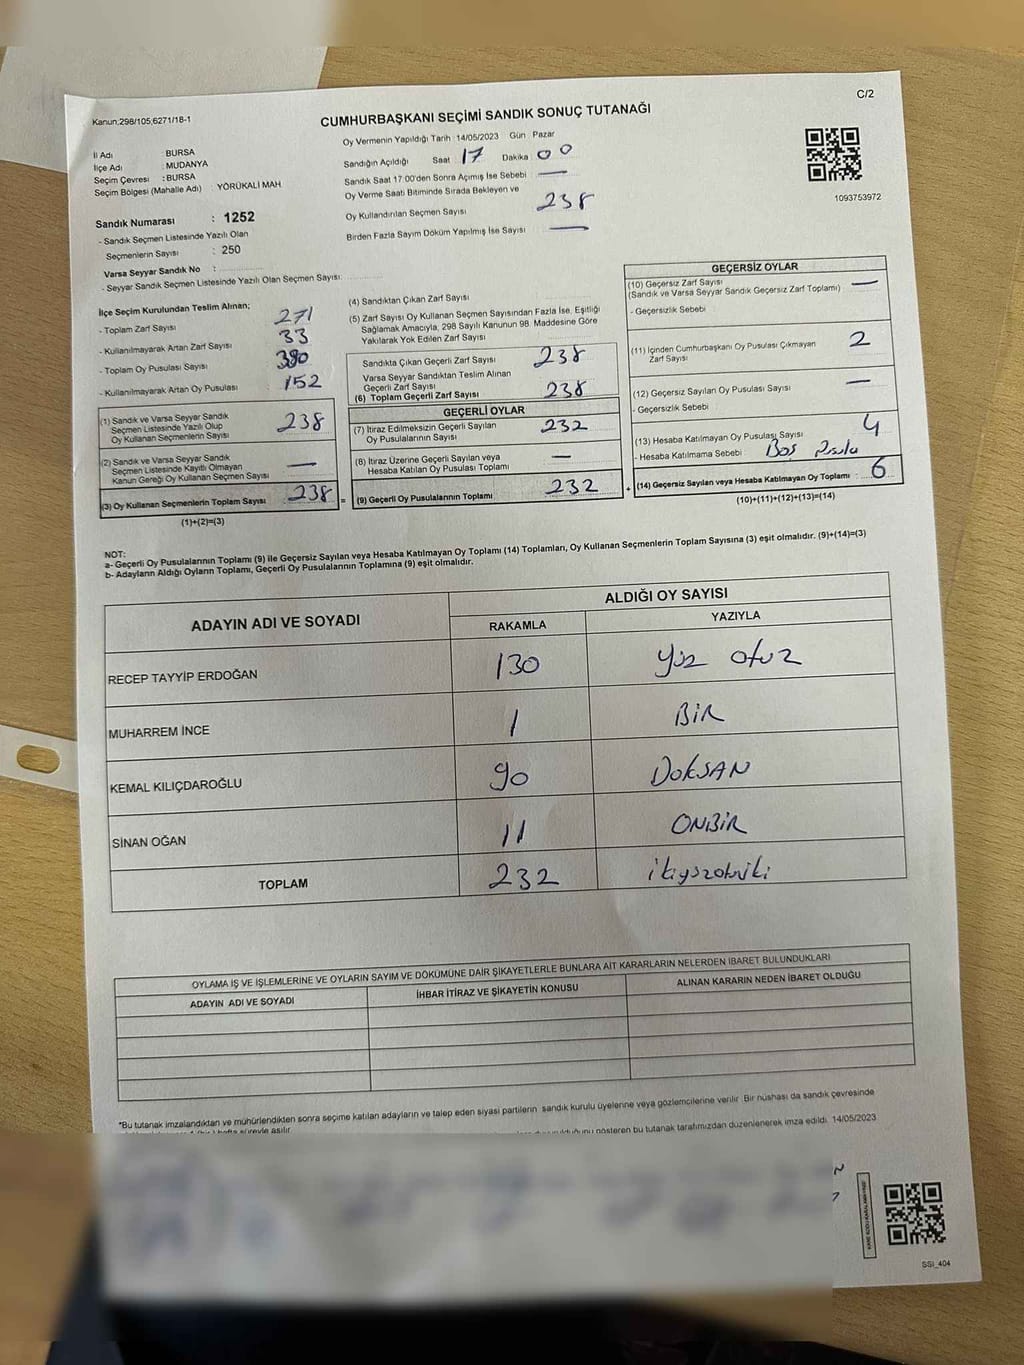 C/2
Kanun:298/105,6271/18-1
CUMHURBAŞKANI SEÇİMİ SANDIK SONUÇ TUTANAĞI
İl Adı : BURSA
İlçe Adı : MUDANYA
Seçim Çevresi : BURSA
Seçim Bölgesi (Mahalle Adı) : YÖRÜKALİ MAH
Sandık Numarası : 1252
- Sandık Seçmen Listesinde Yazılı Olan
Seçmenlerin Sayısı : 250
Varsa Seyyar Sandık No :
- Seyyar Sandık Seçmen Listesinde Yazılı Olan Seçmen Sayısı:
Oy Vermenin Yapıldığı Tarih 14/05/2023 Gün Pazar
Sandığın Açıldığı Saat 17 Dakika 00
Sandık Saat 17:00'den Sonra Açımış İse Sebebi —
Oy Verme Saati Bitiminde Sırada Bekleyen ve
Oy Kullandırılan Seçmen Sayısı 238
Birden Fazla Sayım Döküm Yapılmış İse Sayısı —
1093753972
İlçe Seçim Kurulundan Teslim Alınan;
- Toplam Zarf Sayısı 271
- Kullanılmayarak Artan Zarf Sayısı 33
- Toplam Oy Pusulası Sayısı 390
- Kullanılmayarak Artan Oy Pusulası 152
(1) Sandık ve Varsa Seyyar Sandık
Seçmen Listesinde Yazılı Olup
Oy Kullanan Seçmenlerin Sayısı 238
(2) Sandık ve Varsa Seyyar Sandık
Seçmen Listesinde Kayıtlı Olmayan
Kanun Gereği Oy Kullanan Seçmen Sayısı —
(3) Oy Kullanan Seçmenlerin Toplam Sayısı 238 =
(1)+(2)=(3)
(4) Sandıktan Çıkan Zarf Sayısı
(5) Zarf Sayısı Oy Kullanan Seçmen Sayısından Fazla İse, Eşitliği
Sağlamak Amacıyla, 298 Sayılı Kanunun 98. Maddesine Göre
Yakılarak Yok Edilen Zarf Sayısı
Sandıkta Çıkan Geçerli Zarf Sayısı 238
Varsa Seyyar Sandıktan Teslim Alınan
Geçerli Zarf Sayısı
(6) Toplam Geçerli Zarf Sayısı 238
GEÇERLİ OYLAR
(7) İtiraz Edilmeksizin Geçerli Sayılan
Oy Pusulalarının Sayısı 232
(8) İtiraz Üzerine Geçerli Sayılan veya
Hesaba Katılan Oy Pusulası Toplamı —
(9) Geçerli Oy Pusulalarının Toplamı 232 +
GEÇERSİZ OYLAR
(10) Geçersiz Zarf Sayısı —
(Sandık ve Varsa Seyyar Sandık Geçersiz Zarf Toplamı)
- Geçersizlik Sebebi
(11) İçinden Cumhurbaşkanı Oy Pusulası Çıkmayan
Zarf Sayısı 2
(12) Geçersiz Sayılan Oy Pusulası Sayısı —
- Geçersizlik Sebebi
(13) Hesaba Katılmayan Oy Pusulası Sayısı 4
- Hesaba Katılmama Sebebi Boş Pusula
(14) Geçersiz Sayılan veya Hesaba Katılmayan Oy Toplamı : 6
(10)+(11)+(12)+(13)=(14)
NOT:
a- Geçerli Oy Pusulalarının Toplamı (9) ile Geçersiz Sayılan veya Hesaba Katılmayan Oy Toplamı (14) Toplamları, Oy Kullanan Seçmenlerin Toplam Sayısına (3) eşit olmalıdır. (9)+(14)=(3)
b- Adayların Aldığı Oyların Toplamı, Geçerli Oy Pusulalarının Toplamına (9) eşit olmalıdır.
ADAYIN ADI VE SOYADI ALDIĞI OY SAYISI
RAKAMLA YAZIYLA
RECEP TAYYİP ERDOĞAN 130 Yüz otuz
MUHARREM İNCE 1 BİR
KEMAL KILIÇDAROĞLU 90 DOKSAN
SİNAN OĞAN 11 ONBİR
TOPLAM 232
OYLAMA İŞ VE İŞLEMLERİNE VE OYLARIN SAYIM VE DÖKÜMÜNE DAİR ŞİKAYETLERLE BUNLARA AİT KARARLARIN NELERDEN İBARET BULUNDUKLARI
ADAYIN ADI VE SOYADI İHBAR İTİRAZ VE ŞİKAYETİN KONUSU ALINAN KARARIN NEDEN İBARET OLDUĞU
*Bu tutanak imzalandıktan ve mühürlendikten sonra seçime katılan adayların ve talep eden siyasi partilerin sandık kurulu üyelerine veya gözlemcilerine verilir. Bir nüshası da sandık çevresinde
süreyle asılır. gösteren bu tutanak tarafımızdan düzenlenerek imza edildi. 14/05/2023
SSİ_404